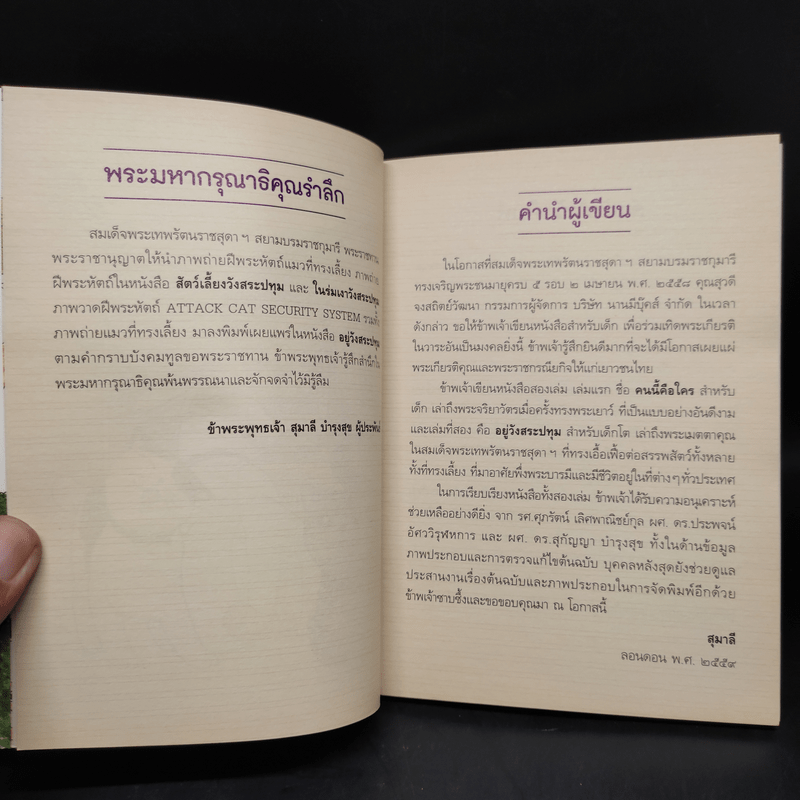 พระมหากรุณาธิคุณรำลึก
สมเด็จพระเทพรัตนราชสุดาฯ สยามบรมราชกุมารี พระราชทาน
พระราชานุญาตให้นำภาพถ่ายฝีพระหัตถ์แมวที่ทรงเลี้ยง ภาพถ่าย
ฝีพระหัตถ์ในหนังสือ สัตว์เลี้ยงวังสระปทุม และ ในร่มเงาวังสระปทุม
ภาพวาดฝีพระหัตถ์ ATTACK CAT SECURITY SYSTEM รวมทั้ง
ภาพถ่ายแมวที่ทรงเลี้ยง มาลงพิมพ์เผยแพร่ในหนังสือ อยู่วังสระปทุม
ตามคำกราบบังคมทูลขอพระราชทาน ข้าพระพุทธเจ้ารู้สึกสำนึกใน
พระมหากรุณาธิคุณพ้นพรรณนาและจักจดจำไว้มิรู้ลืม
ข้าพระพุทธเจ้า สุมาลี บำรุงสุข ผู้ประพันธ์
คำนำผู้เขียน
ในโอกาสที่สมเด็จพระเทพรัตนราชสุดาฯ สยามบรมราชกุมารี
ทรงเจริญพระชนมายุครบ ๕ รอบ ๒ เมษายน พ.ศ. ๒๕๕๘ คุณสุวดี
จงสถิตย์วัฒนา กรรมการผู้จัดการ บริษัท นานมีบุ๊คส์ จำกัด ในเวลา
ดังกล่าว ขอให้ข้าพเจ้าเขียนหนังสือสำหรับเด็ก เพื่อร่วมเทิดพระเกียรติ
ในวาระอันเป็นมงคลยิ่งนี้ ข้าพเจ้ารู้สึกยินดีมากที่จะได้มีโอกาสเผยแผ่
พระเกียรติคุณและพระราชกรณียกิจให้แก่เยาวชนไทย
ข้าพเจ้าเขียนหนังสือสองเล่ม เล่มแรก ชื่อ คนนี้คือใคร สำหรับ
เด็ก เล่าถึงพระจริยาวัตรเมื่อครั้งทรงพระเยาว์ ที่เป็นแบบอย่างอันดีงาม
และเล่มที่สอง คือ อยู่วังสระปทุม สำหรับเด็กโต เล่าถึงพระเมตตาคุณ
ในสมเด็จพระเทพรัตนราชสุดาฯ ที่ทรงเอื้อเฟื้อต่อสรรพสัตว์ทั้งหลาย
ทั้งที่ทรงเลี้ยง ที่มาอาศัยพึ่งพระบารมีและมีชีวิตอยู่ในที่ต่างๆทั่วประเทศ
ในการเรียบเรียงหนังสือทั้งสองเล่ม ข้าพเจ้าได้รับความอนุเคราะห์
ช่วยเหลืออย่างดียิ่ง จาก รศ.ศุภรัตน์ เลิศพาณิชย์กุล ผศ. ดร.ประพจน์
อัศววิรุฬหการ และ ผศ. ดร.สุกัญญา บำรุงสุข ทั้งในด้านข้อมูล
ภาพประกอบและการตรวจแก้ไขต้นฉบับ บุคคลหลังสุดยังช่วยดูแล
ประสานงานเรื่องต้นฉบับและภาพประกอบในการจัดพิมพ์อีกด้วย
ข้าพเจ้าซาบซึ้งและขอขอบคุณมา ณ โอกาสนี้
สุมาลี
ลอนดอน พ.ศ. ๒๕๕๙